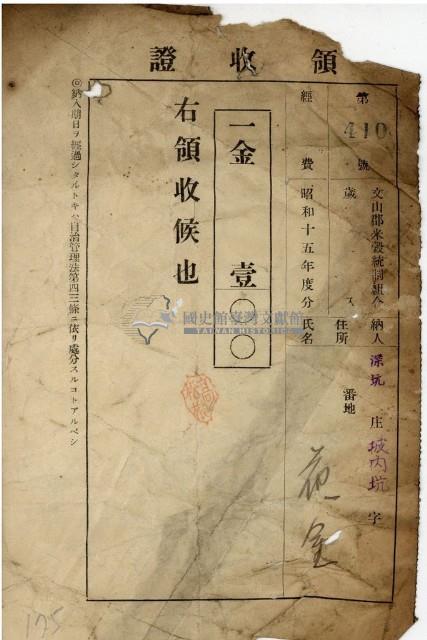 領收證
第410號
文山郡米穀統制組合
歲入
經費
昭和十五年度分
納人
住所
氏名
深坑庄坡內坑字
番地
一金壹〇〇〇
右領收候也
◎納入期日ヲ經過シタルトキハ自治管理法第四三條ニ依リ處分スルコトアルベシ
國史館臺灣文獻館
TAIWAN HISTORICA
175